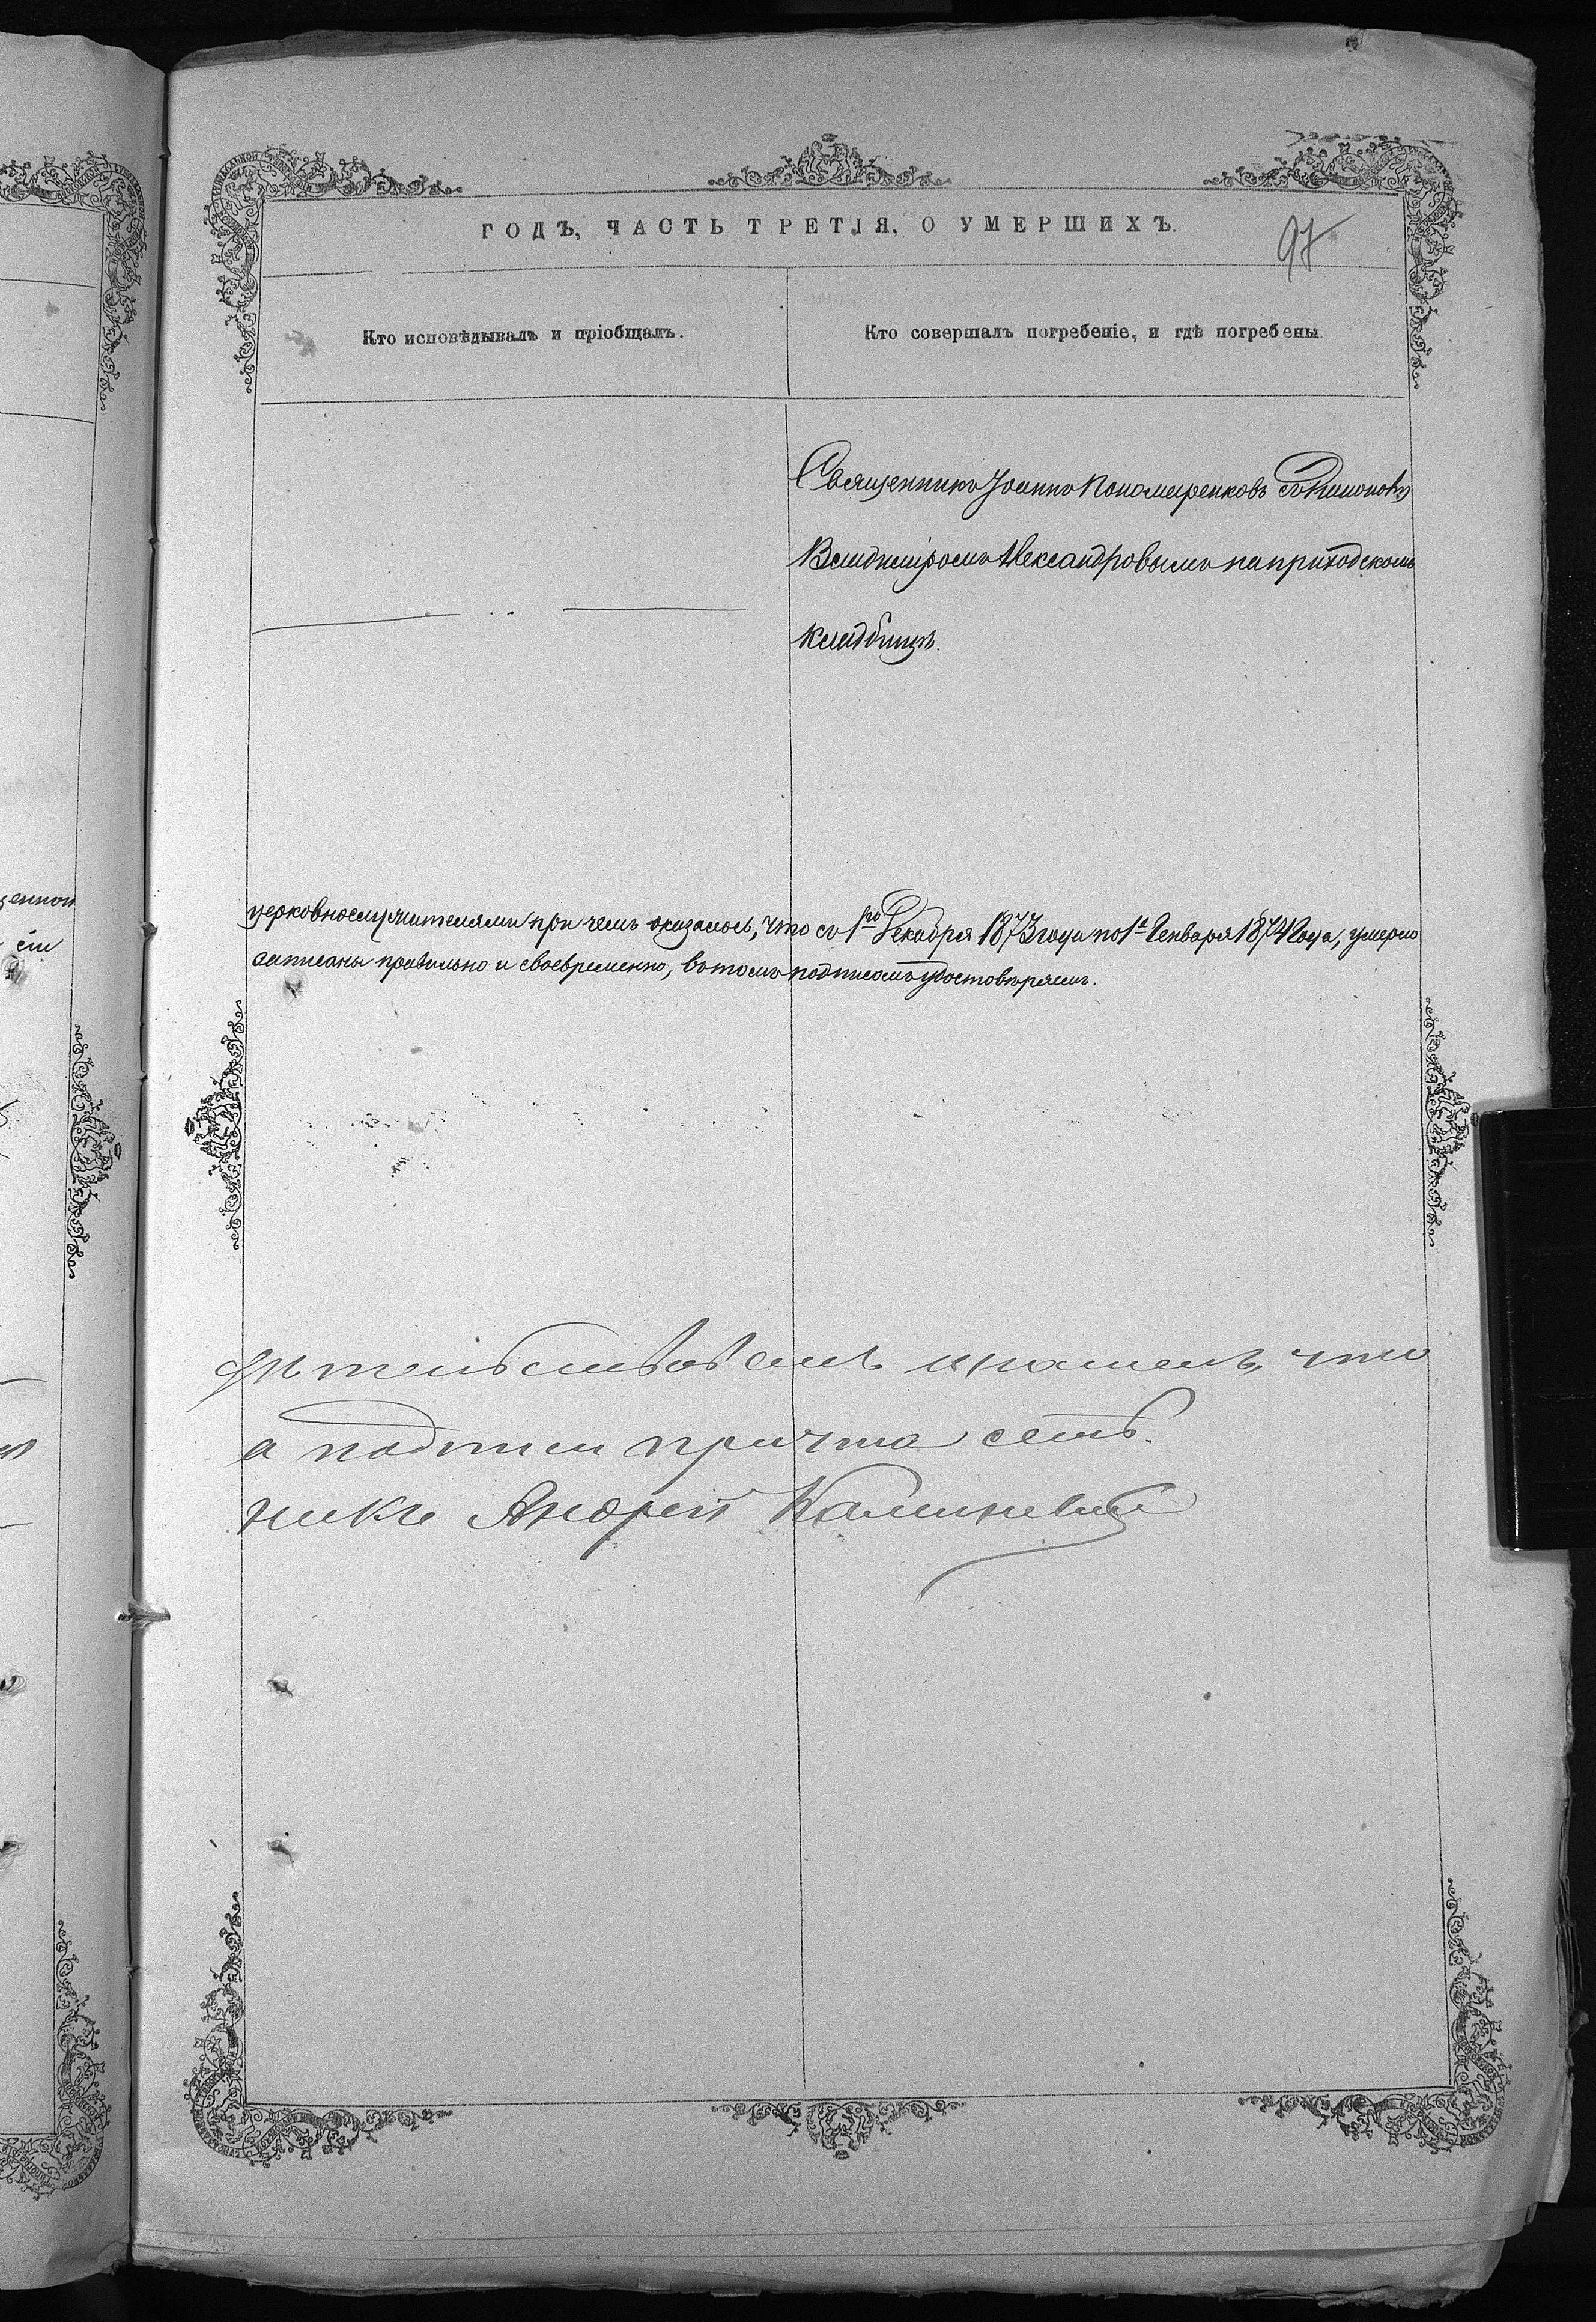 ГОДЪ, ЧАСТЬ ТРЕТІЯ, О УМЕРШИХЪ.
97
Кто исповѣдывалъ и пріобщалъ.
Кто совершалъ погребеніе, и гдѣ погребены.
Священникъ Іоаннъ Пономаренковъ съ
Владиміромъ Александровымъ на приходскомъ
кладбищѣ.
церковнослужителями при чемъ оказалось, что съ 1го Декабря 1873 года по 1е Генваря 1874 года, умерло
записаны правильно и своевременно, въ томъ подписомъ удостовѣряемъ.
что
а подписи причта есть.
никъ Андрей